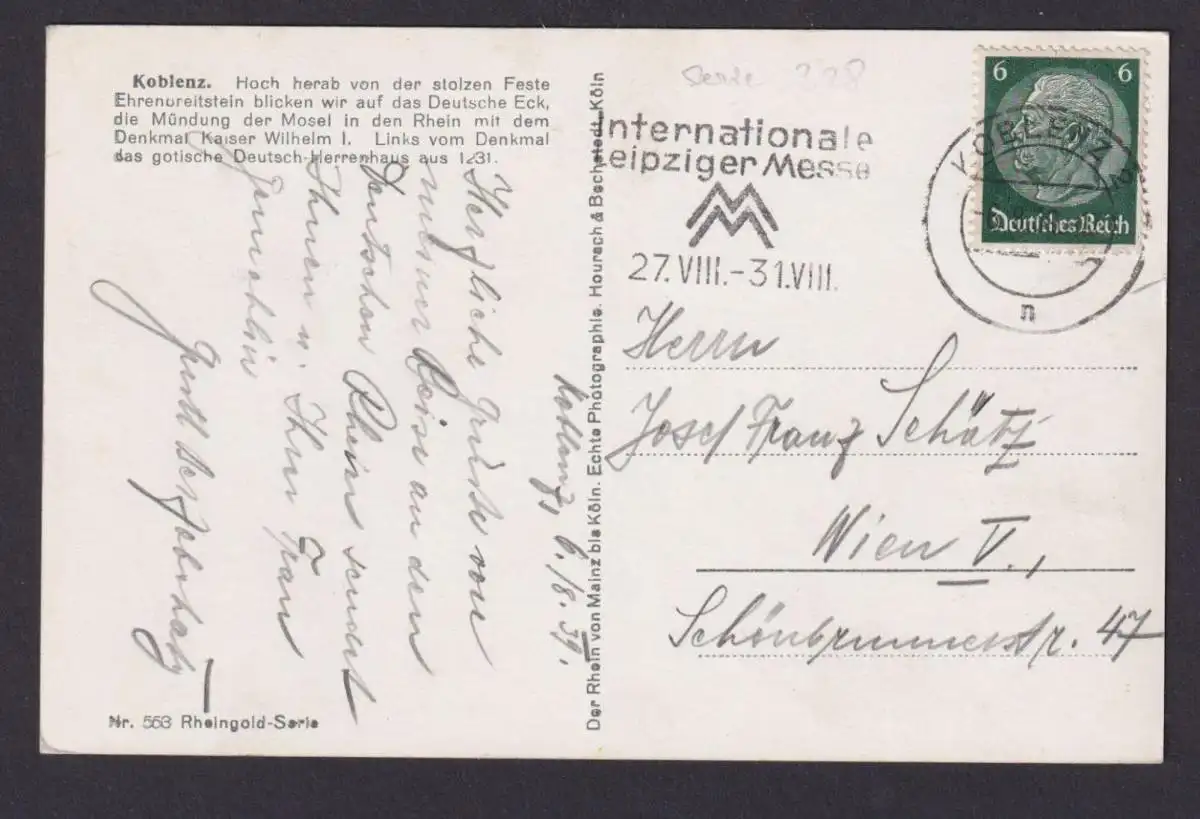 Koblenz. Hoch herab von der stolzen Feste
Ehrenbreitstein blicken wir auf das Deutsche Eck,
die Mündung der Mosel in den Rhein mit dem
Denkmal Kaiser Wilhelm I. Links vom Denkmal
das gotische Deutsch-Herrenhaus aus 1231.
Koblenz, 6./8.39.
Herzliche Grüße von
meiner Reise an den
Deutschen Rhein sendet
Ihnen u. Ihrer Frau
Gemahlin
Nr. 553 Rheingold-Serie
Der Rhein von Mainz bis Köln. Echte Photographie. Hoursch & Bechstedt, Köln
Serie 328
Internationale
Leipziger Messe
MM
27.VIII.-31.VIII.
6 6
Deutsches Reich
KOBLENZ
n
Herrn
Josef Franz Schätz
Wien V.,
Schönbrunnerstr. 47